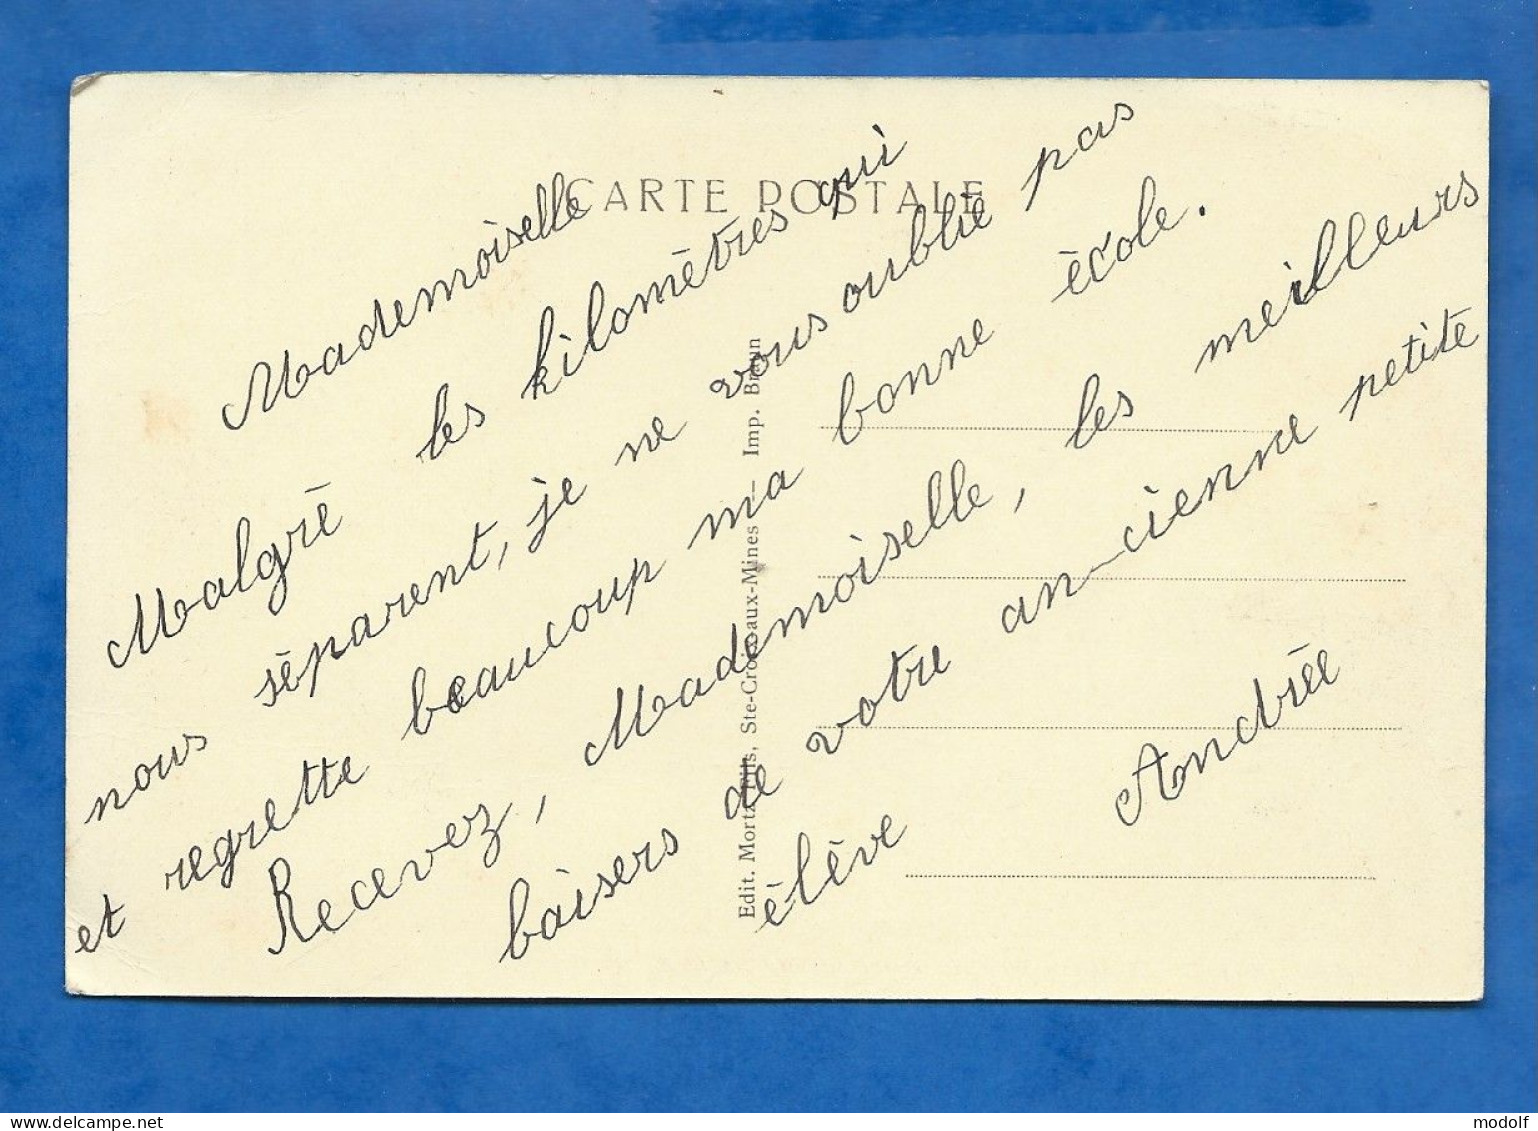 CARTE POSTALE
Mademoiselle
Malgré les kilomètres qui
nous séparent, je ne vous oublie pas
et regrette beaucoup ma bonne école.
Recevez, Mademoiselle, les meilleurs
baisers de votre an-cienne petite
élève Andrée
Edit. Mortz Fils, Ste-Croix-aux-Mines — Imp. Braun
www.delcampe.net
modolf